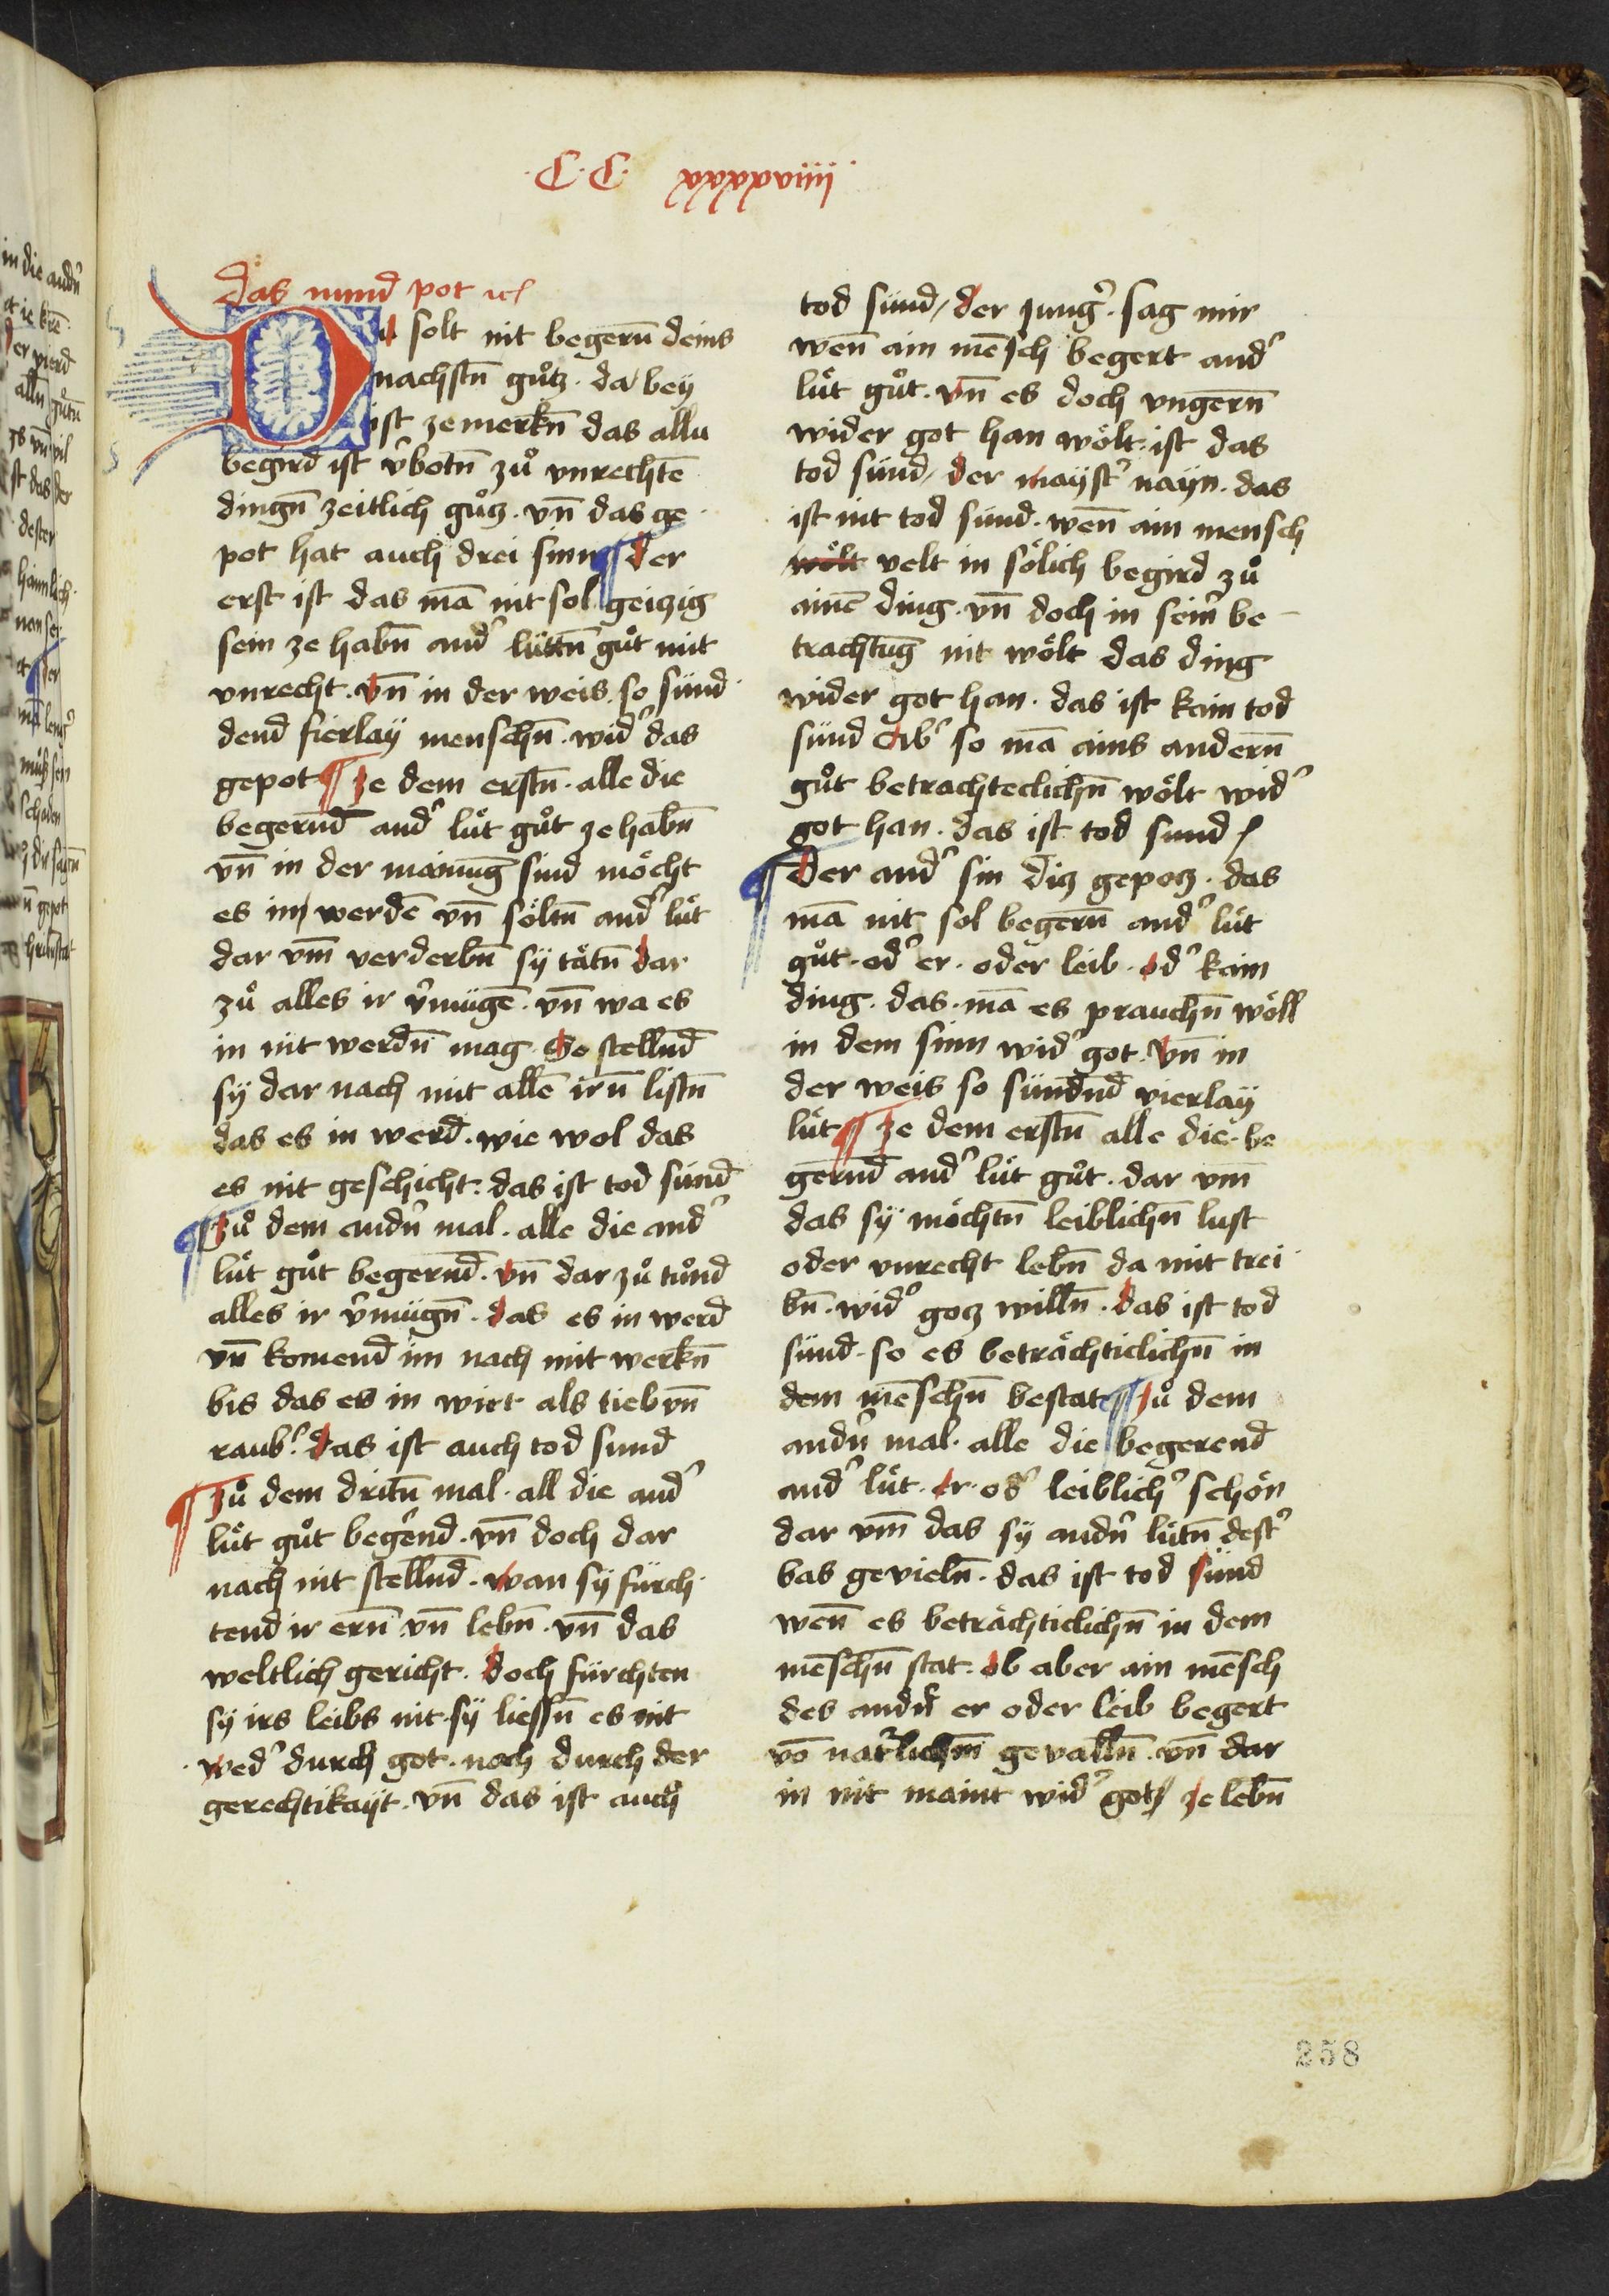 C · C · xxxxxviiij ·
das nund pot ꝛc
Du solt nit begern̄ deins
nachstn̄ gůtz · da bey
ist ze merkn̄ das allu
begird ist v̉botn̄ zů vnrechtē
dingn̄ zeitlich gůtz · vn̄ das ge
pot hat auch drei sinn ¶ der
erst ist das mā nit sol geitzig
sein ze habn̄ and᾽ lüttn̄ gůt mit
vnrecht · vn̄ in der weis · so sünd
dend fierlay menschn̄ · wid᾽ das
gepot ¶ ze dem erstn̄ · alle die
begernd̄ and᾽ lüt gůt ze habn̄
vn̄ in der mainūg sind möcht
es im werdē vn̄ söltn̄ and᾽ lüt
dar vm̄ verderbn̄ sy tätn̄ dar
zů alles ir v̉mügē · vn̄ wa es
in nit werdn̄ mag · So stellnd̄
sy dar nach mit allē irn̄ listn̄
das es in werd̄ · wie wol das
es nit geschicht · das ist tod sünd̄
¶ zů dem andn̉ mal · alle die and᾽
lüt gůt begernd̄ · vn̄ dar zů tůnd
alles ir v̉mügn̄ · das es in werd
vn̄ komend im nach mit werkn̄
bis das es in wirt als tieb vn̄
raub᾽ · das ist auch tod sund
¶ zů dem dritn̄ mal · all die and᾽
lüt gůt beg᾽end · vn̄ doch dar
nach nit stellnd̄ · wan sy fürch
tend ir ern̄ vn̄ lebn̄ · vn̄ das
weltlich gericht · doch fürchten
sy irs leibs nit · sy liessn̄ es nit
wed᾽ durch got · noch durch der
gerechtikayt · vn̄ das ist auch
tod sünd / der jung᾽ · sag mir
wen̄ ain mēsch begert and᾽
lüt gůt · vn̄ es doch vngern̄
wider got han wölt · ist das
tod sünd / der mayst᾽ nayn · das
ist nit tod sünd · wen̄ ain mensch
wölt velt in sölich begird zů
ainē ding · vn̄ doch in sein᾽ be
trachtūg nit wölt das ding
wider got han · das ist kain tod
sünd Ab᾽ so mā ains andern̄
gůt betrachteclichn̄ wölt wid᾽
got han · das ist tod sund /
¶ Der and᾽ sin ditz gepotz · das
mā nit sol begern̄ and᾽ lüt
gůt · od᾽ er · oder leib · od᾽ kain
ding · das · mā es prauchn̄ wöll
in dem sinn wid᾽ got · vn̄ in
der weis so sündnd̄ vierlay
lüt ¶ ze dem erstn̄ alle die · be
gernd̄ and᾽ lüt gůt · dar vm̄
das sy möchtn̄ leiblichn̄ lust
oder vnrecht lebn̄ da mit trei
bn̄ · wid᾽ gotz willn̄ · das ist tod
sünd · so es beträchticlichn̄ in
dem mēschn̄ bestat ¶ zů dem
andn̉ mal · alle die begerend
and᾽ lüt · er · od᾽ leiblich᾽ schön
dar vm̄ das sy andn̉ lütn̄ dest᾽
bas gevieln̄ · das ist tod sünd
wen̄ es beträchticlichn̄ in dem
mēschn̄ stat · ob aber ain mēsch
des andn̉ er oder leib begert
vō nat᾽lichm̄ gevalln̄ · vn̄ dar
in nit maint wid᾽ got / ze lebn̄
258